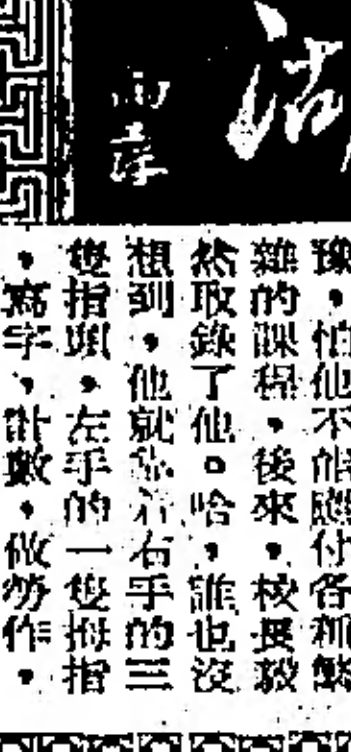 豫，怕他不能應付各種繁
雜的課程，後來，校長毅
然取錄了他。哈，誰也沒
想到，他就靠着右手的三
隻指頭，左手的一隻拇指
，寫字，計數，做勞作，